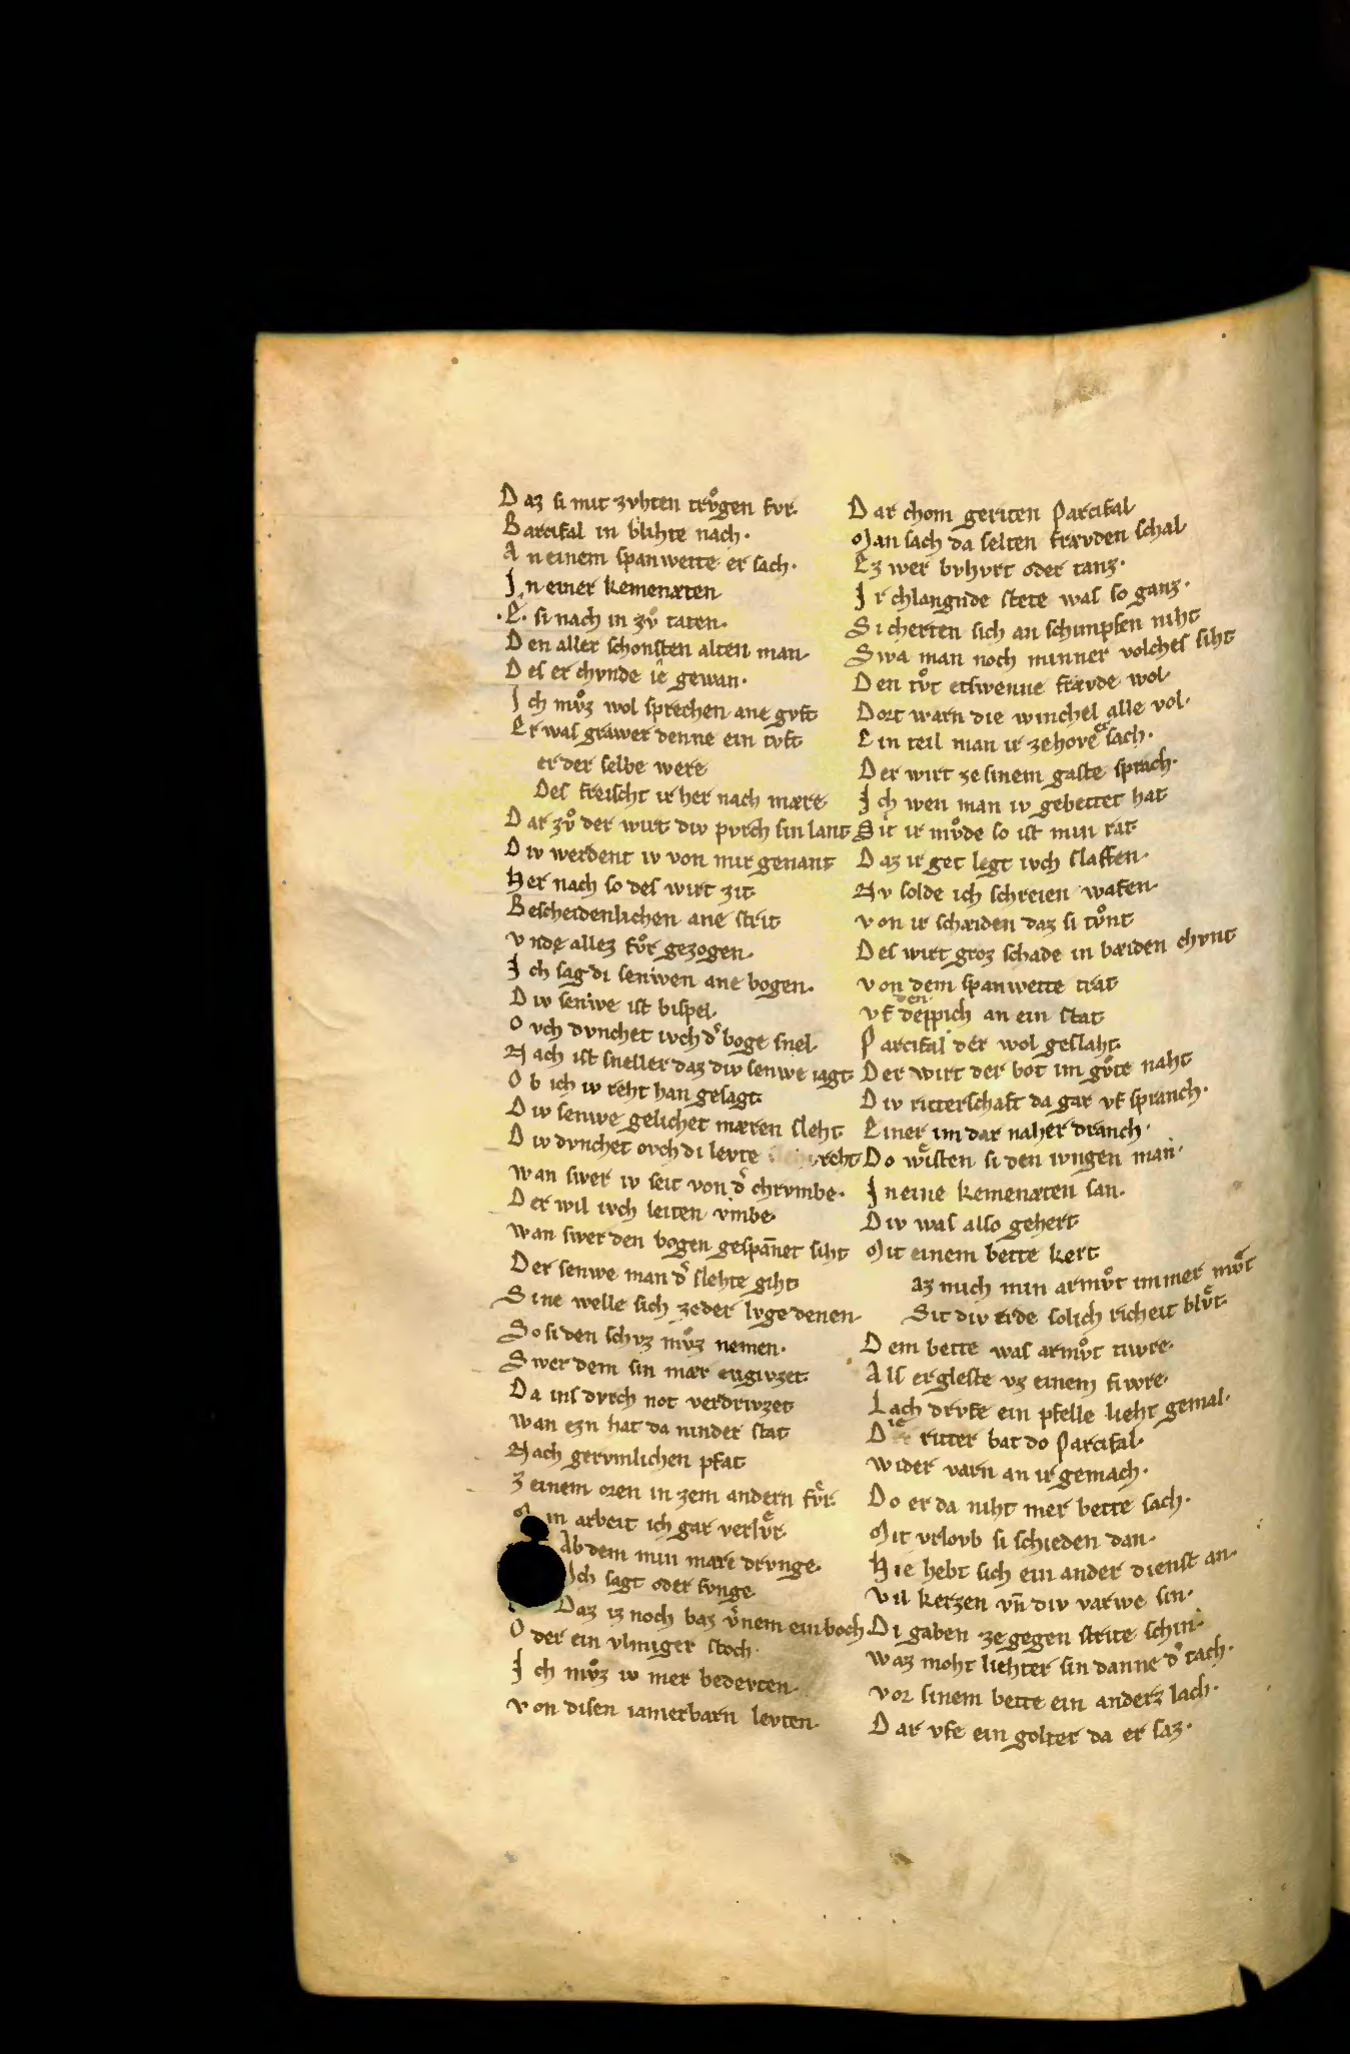 Daz si mit zvhten trvͦgen fvr.
Barcifal in blihte nach.
An einem spanwette er sach.
In einer kemenæten
.E. si nach in zvͦ taten.
Den aller schonsten alten man.
Des er chvnde ie gewan.
Ich mvͦz wol sprechen ane gvft
Er was grawer denne ein tvft
er der selbe were
Des freischt ir her nach mære
Dar zvͦ der wirt div pvrch sin lant
Div werdent iv von mir genant
Her nach so des wirt zit
Bescheidenlichen ane strit
vnde allez fvͦr gezogen.
Ich sag di senwen ane bogen.
Div senwe ist bispel.
Ovch dvnchet ivch d̾ boge snel.
Nach ist sneller daz div senwe iagt
Ob ich iv reht han gesagt
Div senwe gelichet mæren sleht
Div dvnchet ovch di levte reht
wan swer iv seit von d̾ chrvmbe.
Der wil ivch leiten vmbe.
wan swer den bogen gespan̄et siht
Der senwe man d̾ slehte giht
Sine welle sich zeder bvge denen.
So si den schvz mvͦz nemen.
Swer dem sin mær engivzet
Da ins dvrch not verdrivzet
wan ezn hat da ninder stat
Nach gervmlichen pfat
Zeinem oren in zem andern fvͤr.
Min arbeit ich gar verlvͤr
Ab dem min mære drvnge.
Ich sagt oder svnge
Daz iz noch baz v̾nem ein boch
Oder ein vlmiger stoch.
Ich mvͦz iv mer bedevten.
von disen iamerbarn levten.
Dar chom geriten Parcifal
Man sach da selten frævden schal
Ez wer bvhvrt oder tanz.
Ir chlangnde stete was so ganz.
Si cherten sich an schimpfen niht
Swa man noch minner volches siht
Den tvͦt etswenne frævde wol
Dort warn die winchel alle vol.
Ein teil man ir ze hove er sach.
Der wirt ze sinem gaste sprach.
Ich wen man iv gebettet hat
Sit ir mvͦde so ist min rat
Daz ir get legt ivch slaffen.
Nv solde ich schreien wafen.
von ir schæiden daz si tvͦnt
Des wirt groz schade in bæiden chvnt
von dem spanwette trat
vf den deppich an ein stat
Parcifal der wol geslaht
Der wirt der bot im gvͦte naht
Div ritterschaft da gar vf spranch.
Einer im dar naher dranch.
Do wͤisten si den ivngen man.
In eine kemenæten san.
Div was also gehert
Mit einem bette kert
az mich min armvͦt immer mvͤt
Sit div erde solich richeit blvͤt.
Dem bette was armvͦt tivre.
Als er gleste vz einem fivre.
Lach drvfe ein pfelle lieht gemal.
Die ritter bat do Parcifal.
wider varn an ir gemach.
Do er da niht mer bette sach.
Mit vrlovb si schieden dan.
Hie hebt sich ein ander dienst an.
vil kerzen vn̄ div varwe sin.
Di gaben ze gegen strite schin.
waz moht liehter sin danne d̾ tach.
vor sinem bette ein anderz lach.
Dar vfe ein golter da er saz.